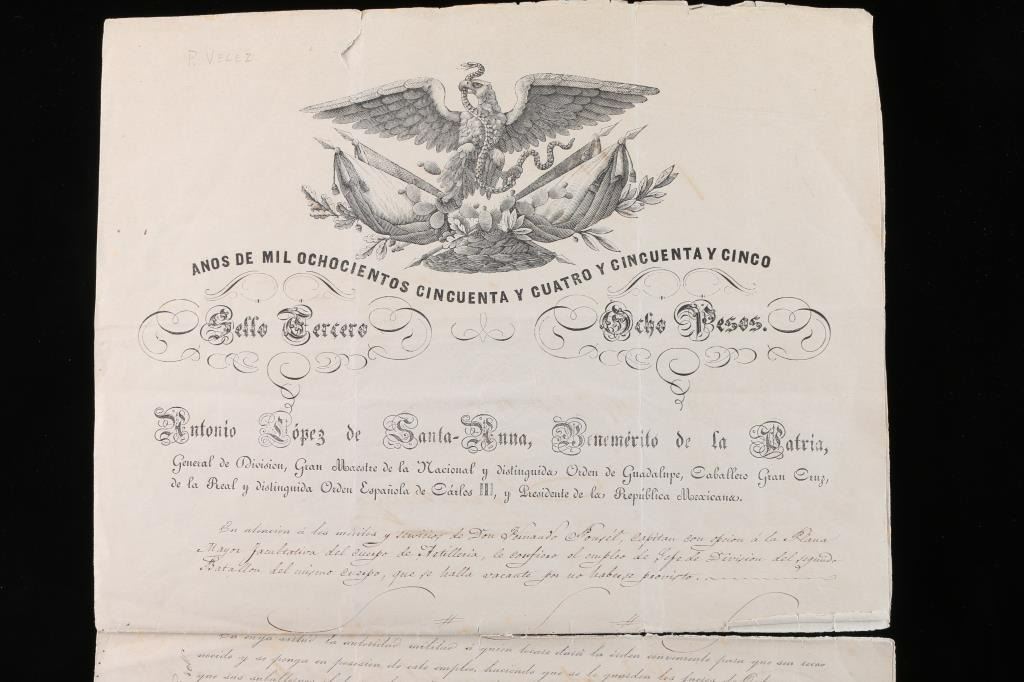 P. VELEZ
AÑOS DE MIL OCHOCIENTOS CINCUENTA Y CUATRO Y CINCUENTA Y CINCO
Sello Tercero Ocho Pesos.
Antonio López de Santa-Anna, Benemérito de la Patria,
General de Division, Gran Maestre de la Nacional y distinguida Orden de Guadalupe, Caballero Gran Cruz,
de la Real y distinguida Orden Española de Cárlos III, y Presidente de la República Mexicana.
En atencion á los méritos y servicios de Don Fernando Pousel, Capitan con opcion á la Plana
Mayor facultativa del cuerpo de Artilleria, le confiero el empleo de Jefe de Division del segundo
Batallon del mismo cuerpo, que se halla vacante por no haberse provisto.
En cuya virtud la autoridad militar á quien tocare dará la órden conveniente para que sea reco
nocido y se ponga en posesion de este empleo, haciendo que se le guarden los fueros de
que sus